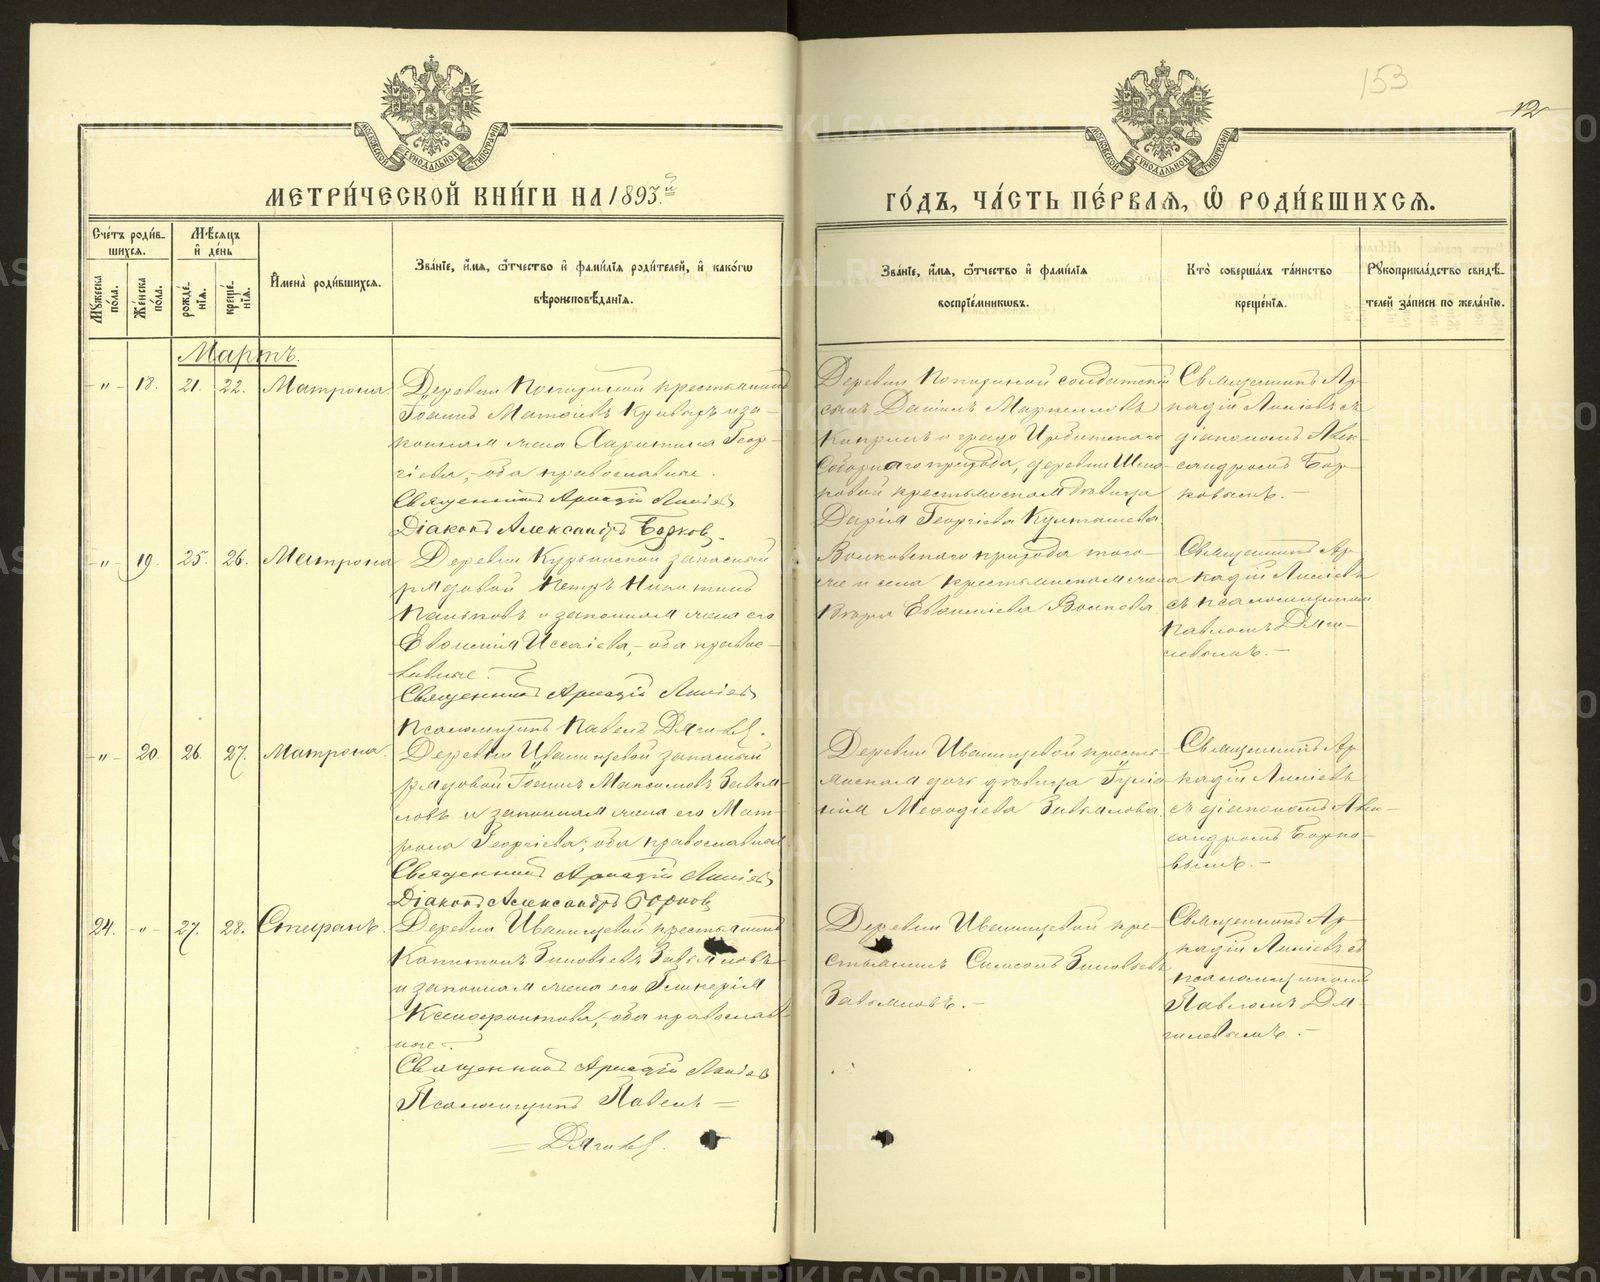 153
12
МЕТРИ́ЧЕСКОЙ КНИ́ГИ НА 1893й
ГО́ДЪ, ЧА́СТЬ ПЕ́РВАЯ, Ѡ РОДИ́ВШИХСЯ.
Сче́тъ роди́в-
шихся.
Мꙋжеска
по́ла.
Же́нска
по́ла.
Мѣ́сяцъ
и҆ де́нь
рожде́-
нїя.
креще́-
нїя.
И҆мена̀ роди́вшихся.
Зва́нїе, и҆́мя, ѻ҆́тчество и҆ фами́лїя роди́телей, и҆ како́гѡ
вѣроисповѣ́данїя.
Зва́нїе, и҆́мя, ѻ҆́тчество и҆ фами́лїя
воспрїе́мникѡвъ.
Кто̀ соверша́лъ та́инство
креще́нїя.
Рꙋкоприкла́дство свидѣ́-
телей за́писи по жела́нїю.
Мартъ.
-"- 18. 21. 22. Матрона
Деревни Кокшиной крестьянинъ
Іоаннъ Матѳіевъ и за-
конная жена Харитина Геор-
гіева, оба православные.
Священникъ Аркадій
Діаконъ Александръ Борков
Деревни солдатскій
сынъ Даніилъ
и града Ирбитскаго
Соборнаго прихода, деревни
крестьянская дѣвица
Дарія Георгіева
Священникъ Ар-
кадій съ
діакономъ Алек-
сандромъ Бор-
ковымъ. -
-"- 19. 25. 26. Матрона
Деревни запасный
рядовой Петръ Никитинъ
и законная жена его
Евѳимія Иссаіева, - оба правос-
лавные.
Священникъ Аркадій
Псаломщикъ Павелъ Дягилев.
Волковскаго прихода того-
же и села крестьянская жена
Евѳиміева Волкова.
Священникъ Ар-
кадій
съ псаломщикомъ
Павломъ Дяги-
левымъ. -
-"- 20. 26. 27. Матрона.
Деревни Иванищевой запасный
рядовой Іоаннъ Максимовъ Завья-
ловъ и законная жена его Мат-
рона Георгіева; оба православные
Священникъ Аркадій
Діаконъ Александръ Борков
Деревни Иванищевой кресть-
янская дочь дѣвица Іулiа-
нія Меѳодіева Завьялова
Священникъ Ар-
кадій
съ діакономъ Алек-
сандромъ Борко-
вымъ. -
24. -"- 27. 28. Стефанъ.
Деревни Иванищевой крестьянинъ
Капитонъ Зиновьевъ Завьяловъ
и законная жена его Гликерія
Ксенофонтова, - оба православ-
ные.
Священникъ Аркадій
Псаломщикъ Павелъ =
= Дягилев.
Деревни Иванищевой кре-
стьянинъ Симеонъ Зиновьевъ
Завьяловъ. -
Священникъ Ар-
кадій съ
псаломщикомъ
Павломъ Дя-
гилевымъ. -
METRIKI.GASO-URAL.RU